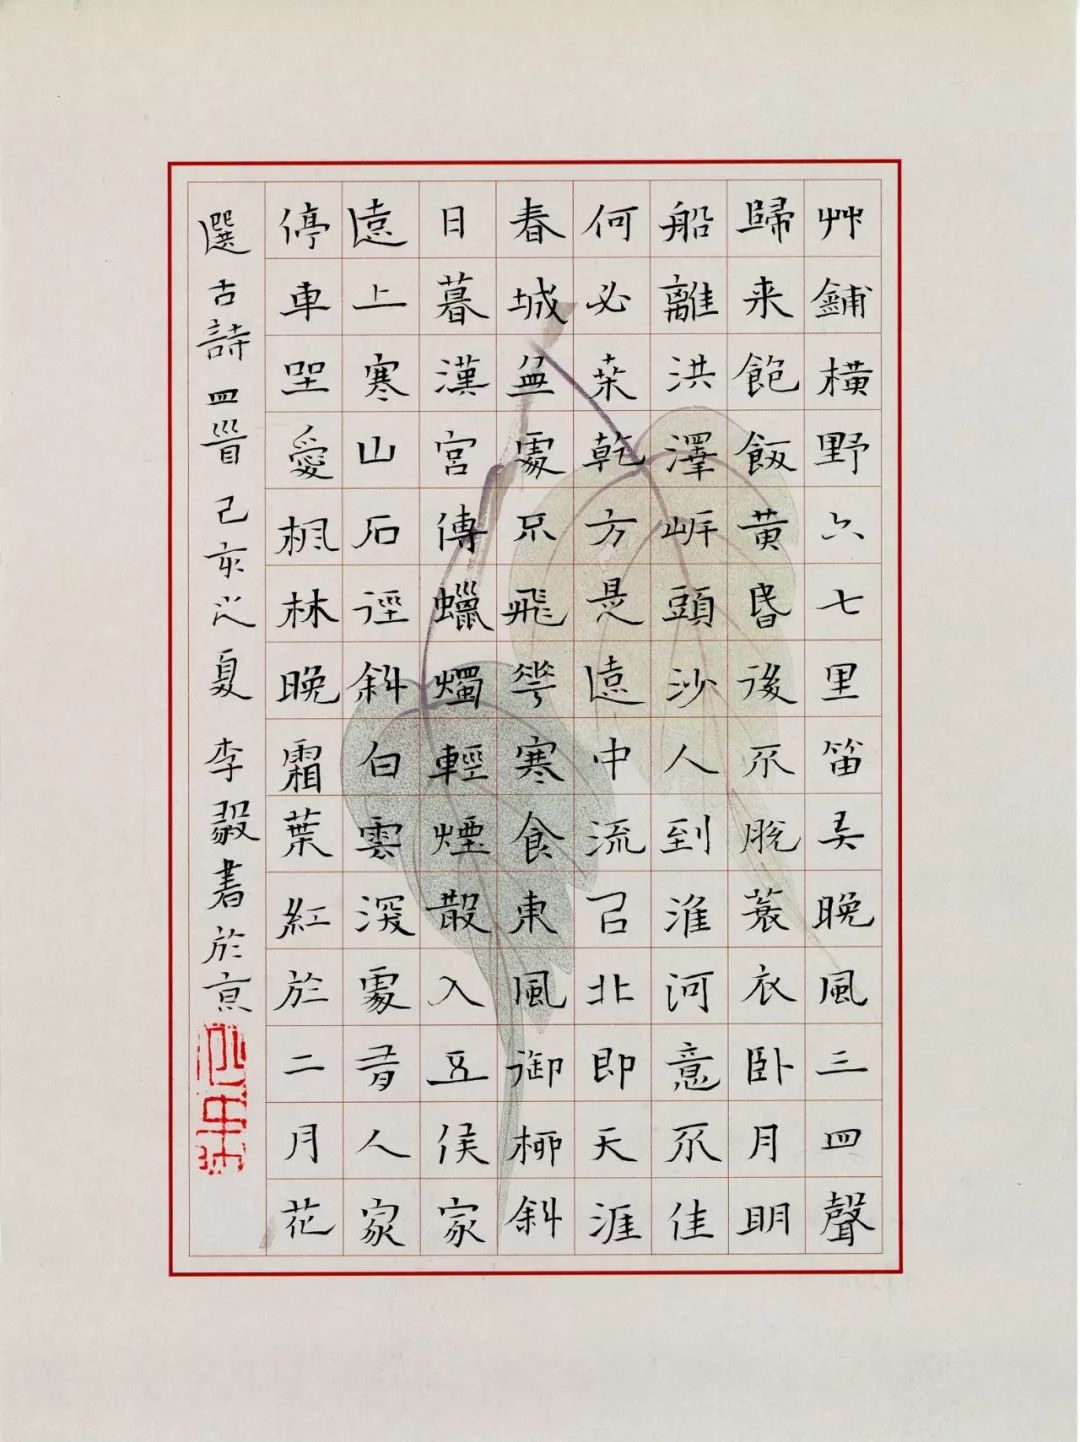 艸鋪橫野六七里笛弄晚風三四聲
歸来飽飯黃昏後不脫蓑衣卧月明
船離洪澤岍頭沙人到淮河意不佳
何必桒乾方是遠中流㠯北即天涯
春城無處不飛花寒食東風御柳斜
日暮漢宮傳蠟燭輕煙散入五侯家
遠上寒山石徑斜白雲深處有人家
停車坐愛楓林晚霜葉紅於二月花
選古詩四首己亥之夏李毅書於京